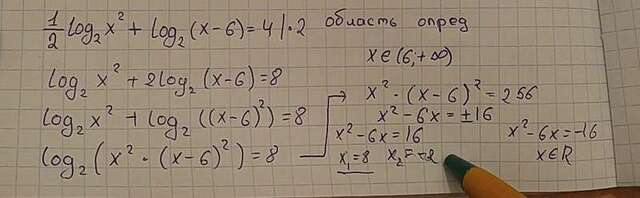 1/2 log₂x² + log₂(x-6)=4 |·2 область опред
x∈(6;+∞)
log₂ x² + 2log₂(x-6)=8
log₂x² + log₂((x-6)²)=8
log₂(x²·(x-6)²)=8 → x²·(x-6)²=256
x²-6x=±16
x²-6x=16 x²-6x=-16
x₁=8 x₂=-2 x∈R